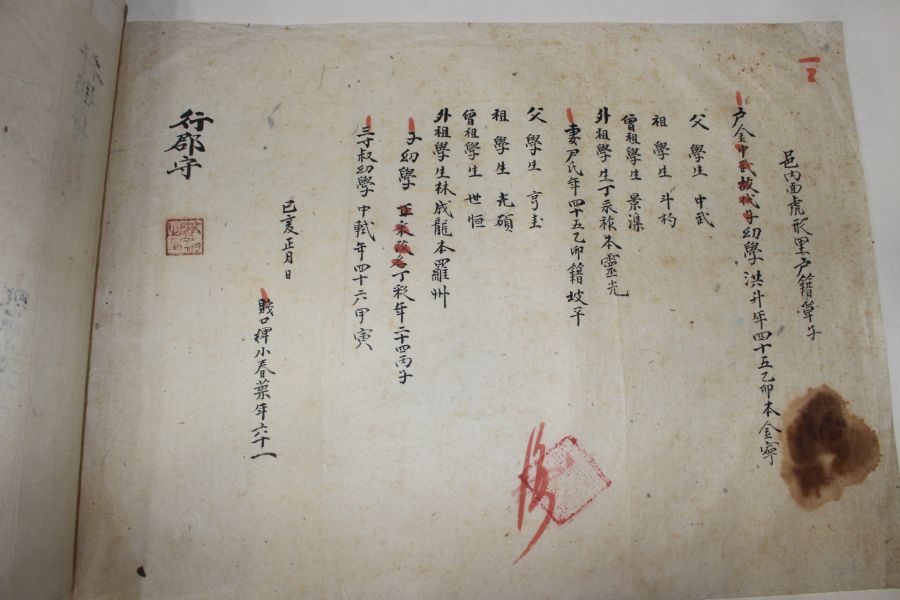 邑内面虎形里户籍單子
户金中武故代子幼學 洪升年四十五乙卯本金寧
父 學生 中武
祖 學生 斗杓
曾祖學生 景濂
外祖學生丁永祿本靈光
妻尹氏年四十五乙卯籍坡平
父 學生 亨圭
祖 學生 光碩
曾祖學生 世恒
外祖學生林成龍本羅州
子幼學 改名丁彩年二十四丙子
三寸叔幼學中軾年四十六甲寅
賤口婢小春葉年六十一
己亥正月日
行郡守